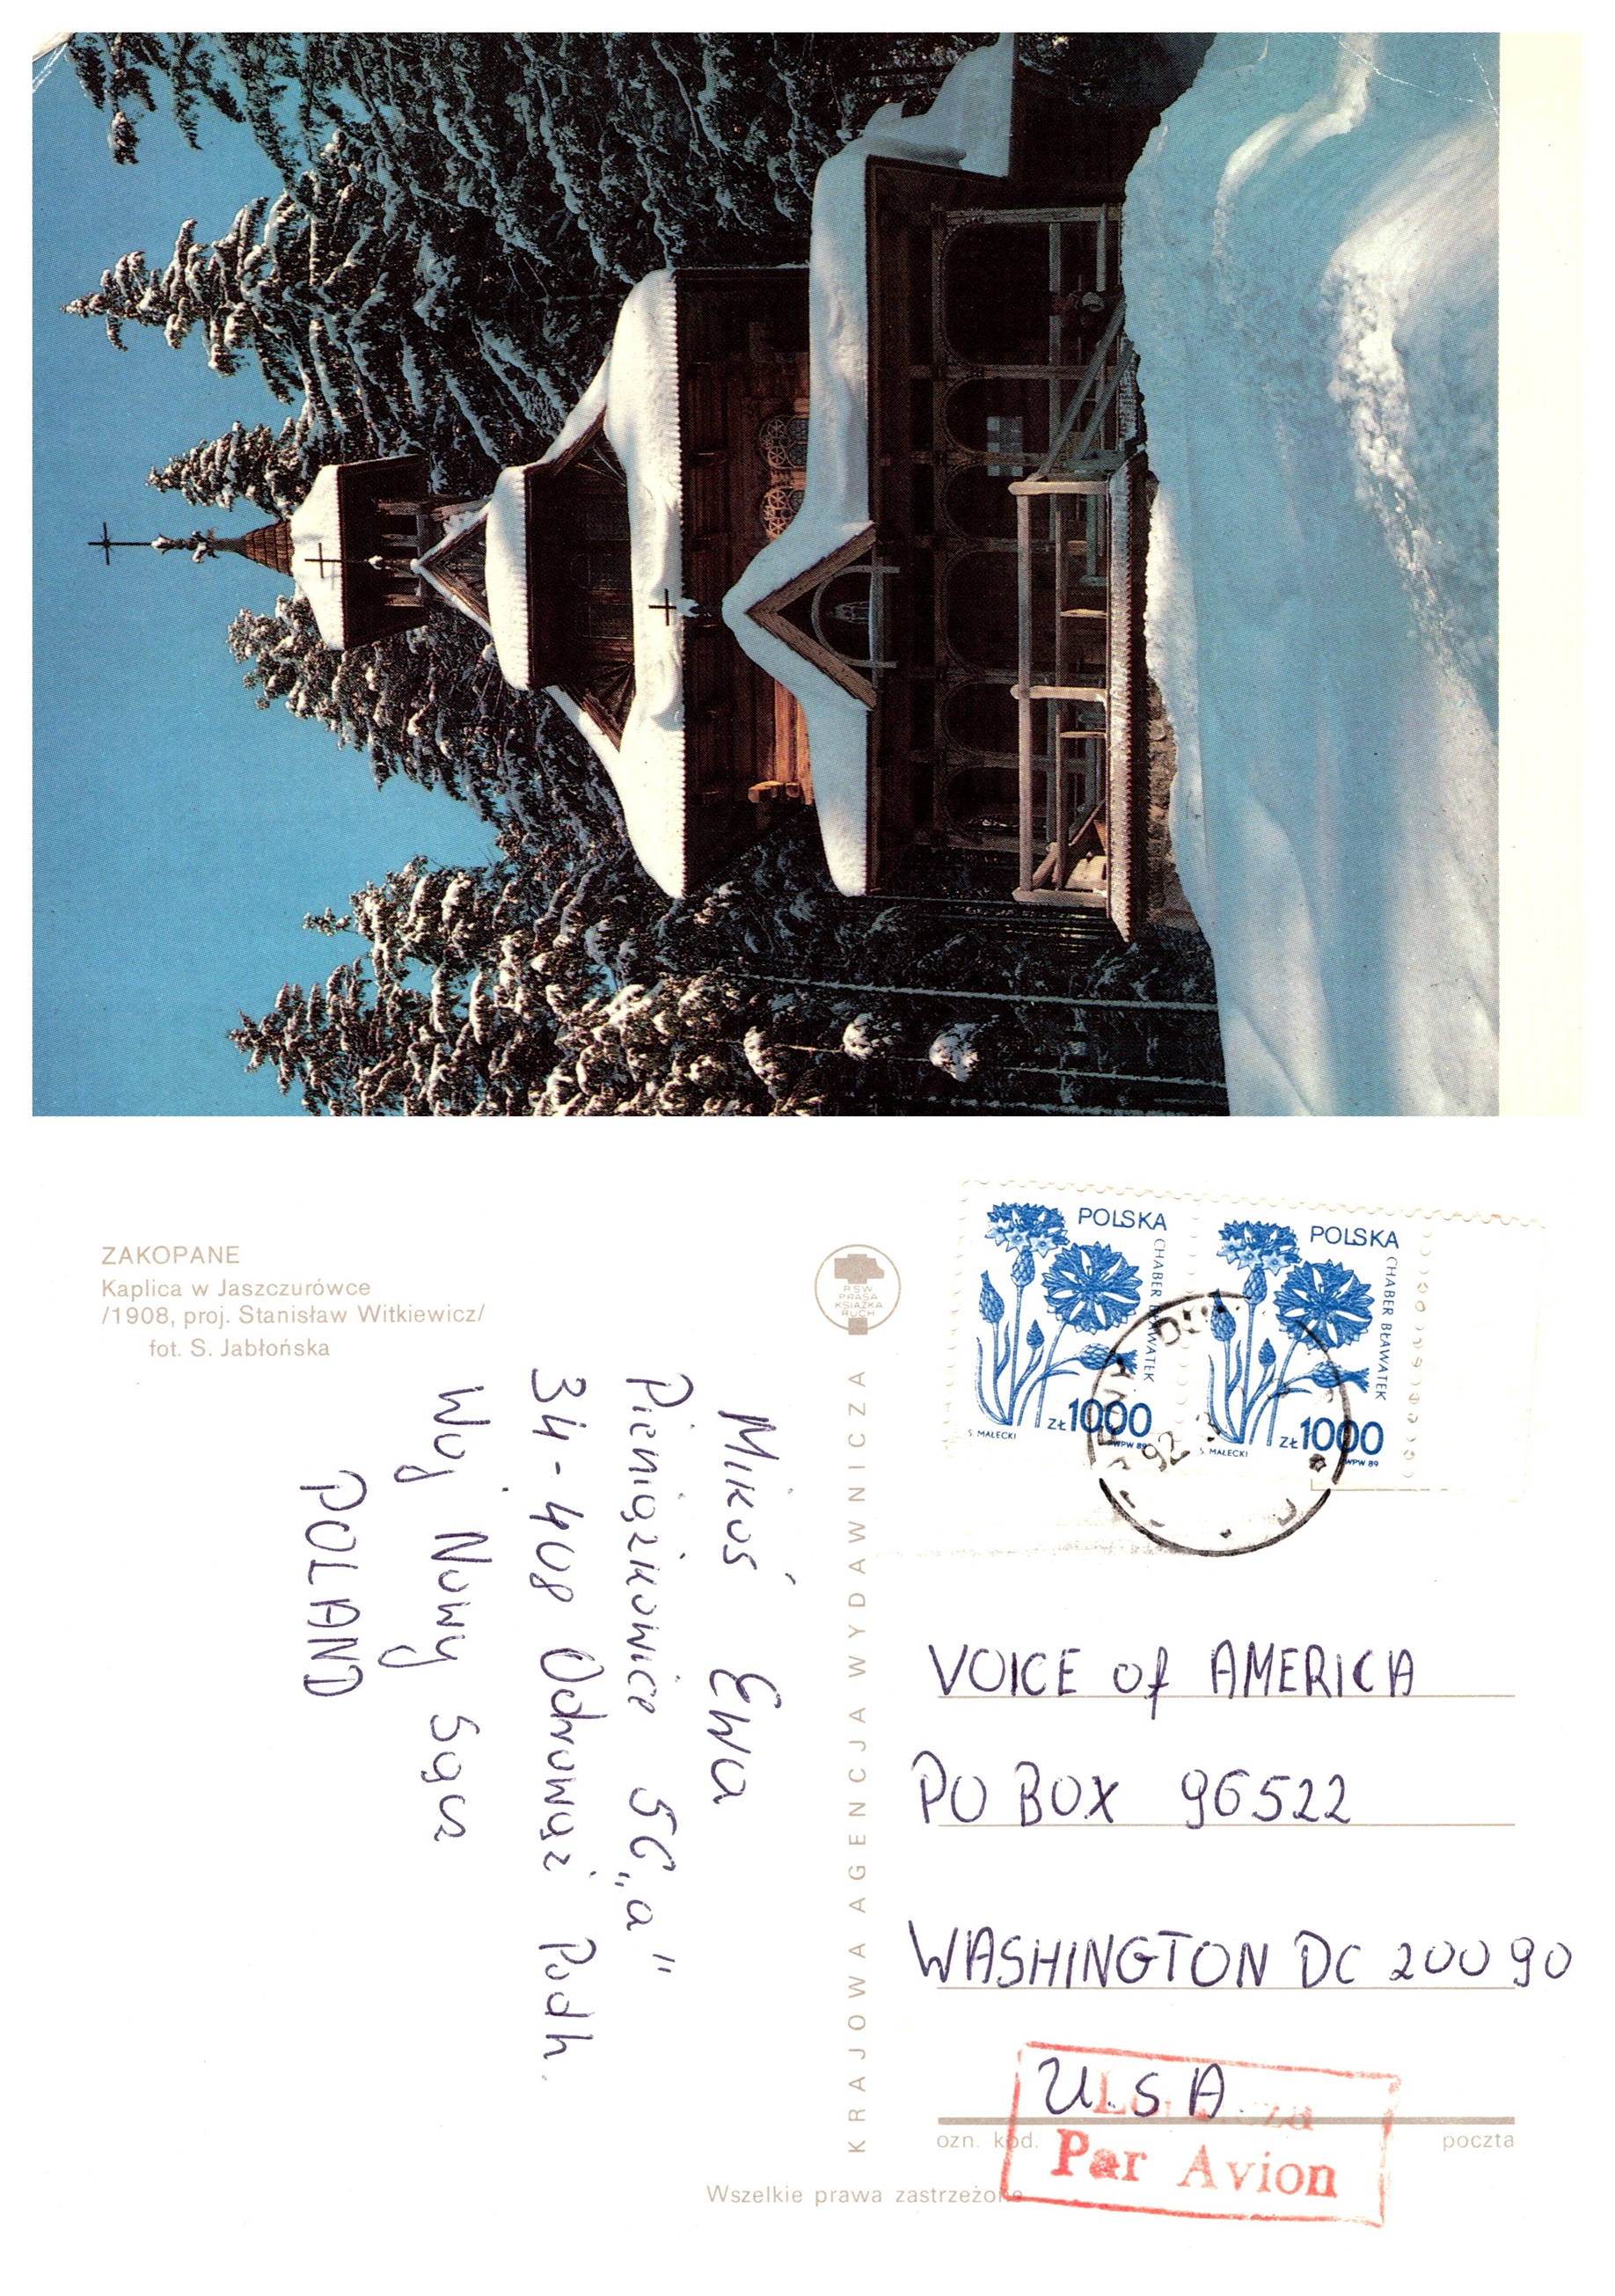 ZAKOPANE
Kaplica w Jaszczurówce
/1908, proj. Stanisław Witkiewicz/
fot. S. Jabłońska
RSW
PRASA
KSIĄŻKA
RUCH
KRAJOWA AGENCJA WYDAWNICZA
Mikoś Ewa
Pieniążkowice 56 „a"
34-408 Odrowąż Podh.
Woj. Nowy Sącz
POLAND
POLSKA
CHABER BŁAWATEK
ZŁ 1000
S. MAŁECKI
PWPW 89
POLSKA
CHABER BŁAWATEK
ZŁ 1000
S. MAŁECKI
PWPW 89
92
VOICE of AMERICA
PO BOX 96522
WASHINGTON DC 20090
U.S.A.
ozn. kod.
poczta
Par Avion
Wszelkie prawa zastrzeżone